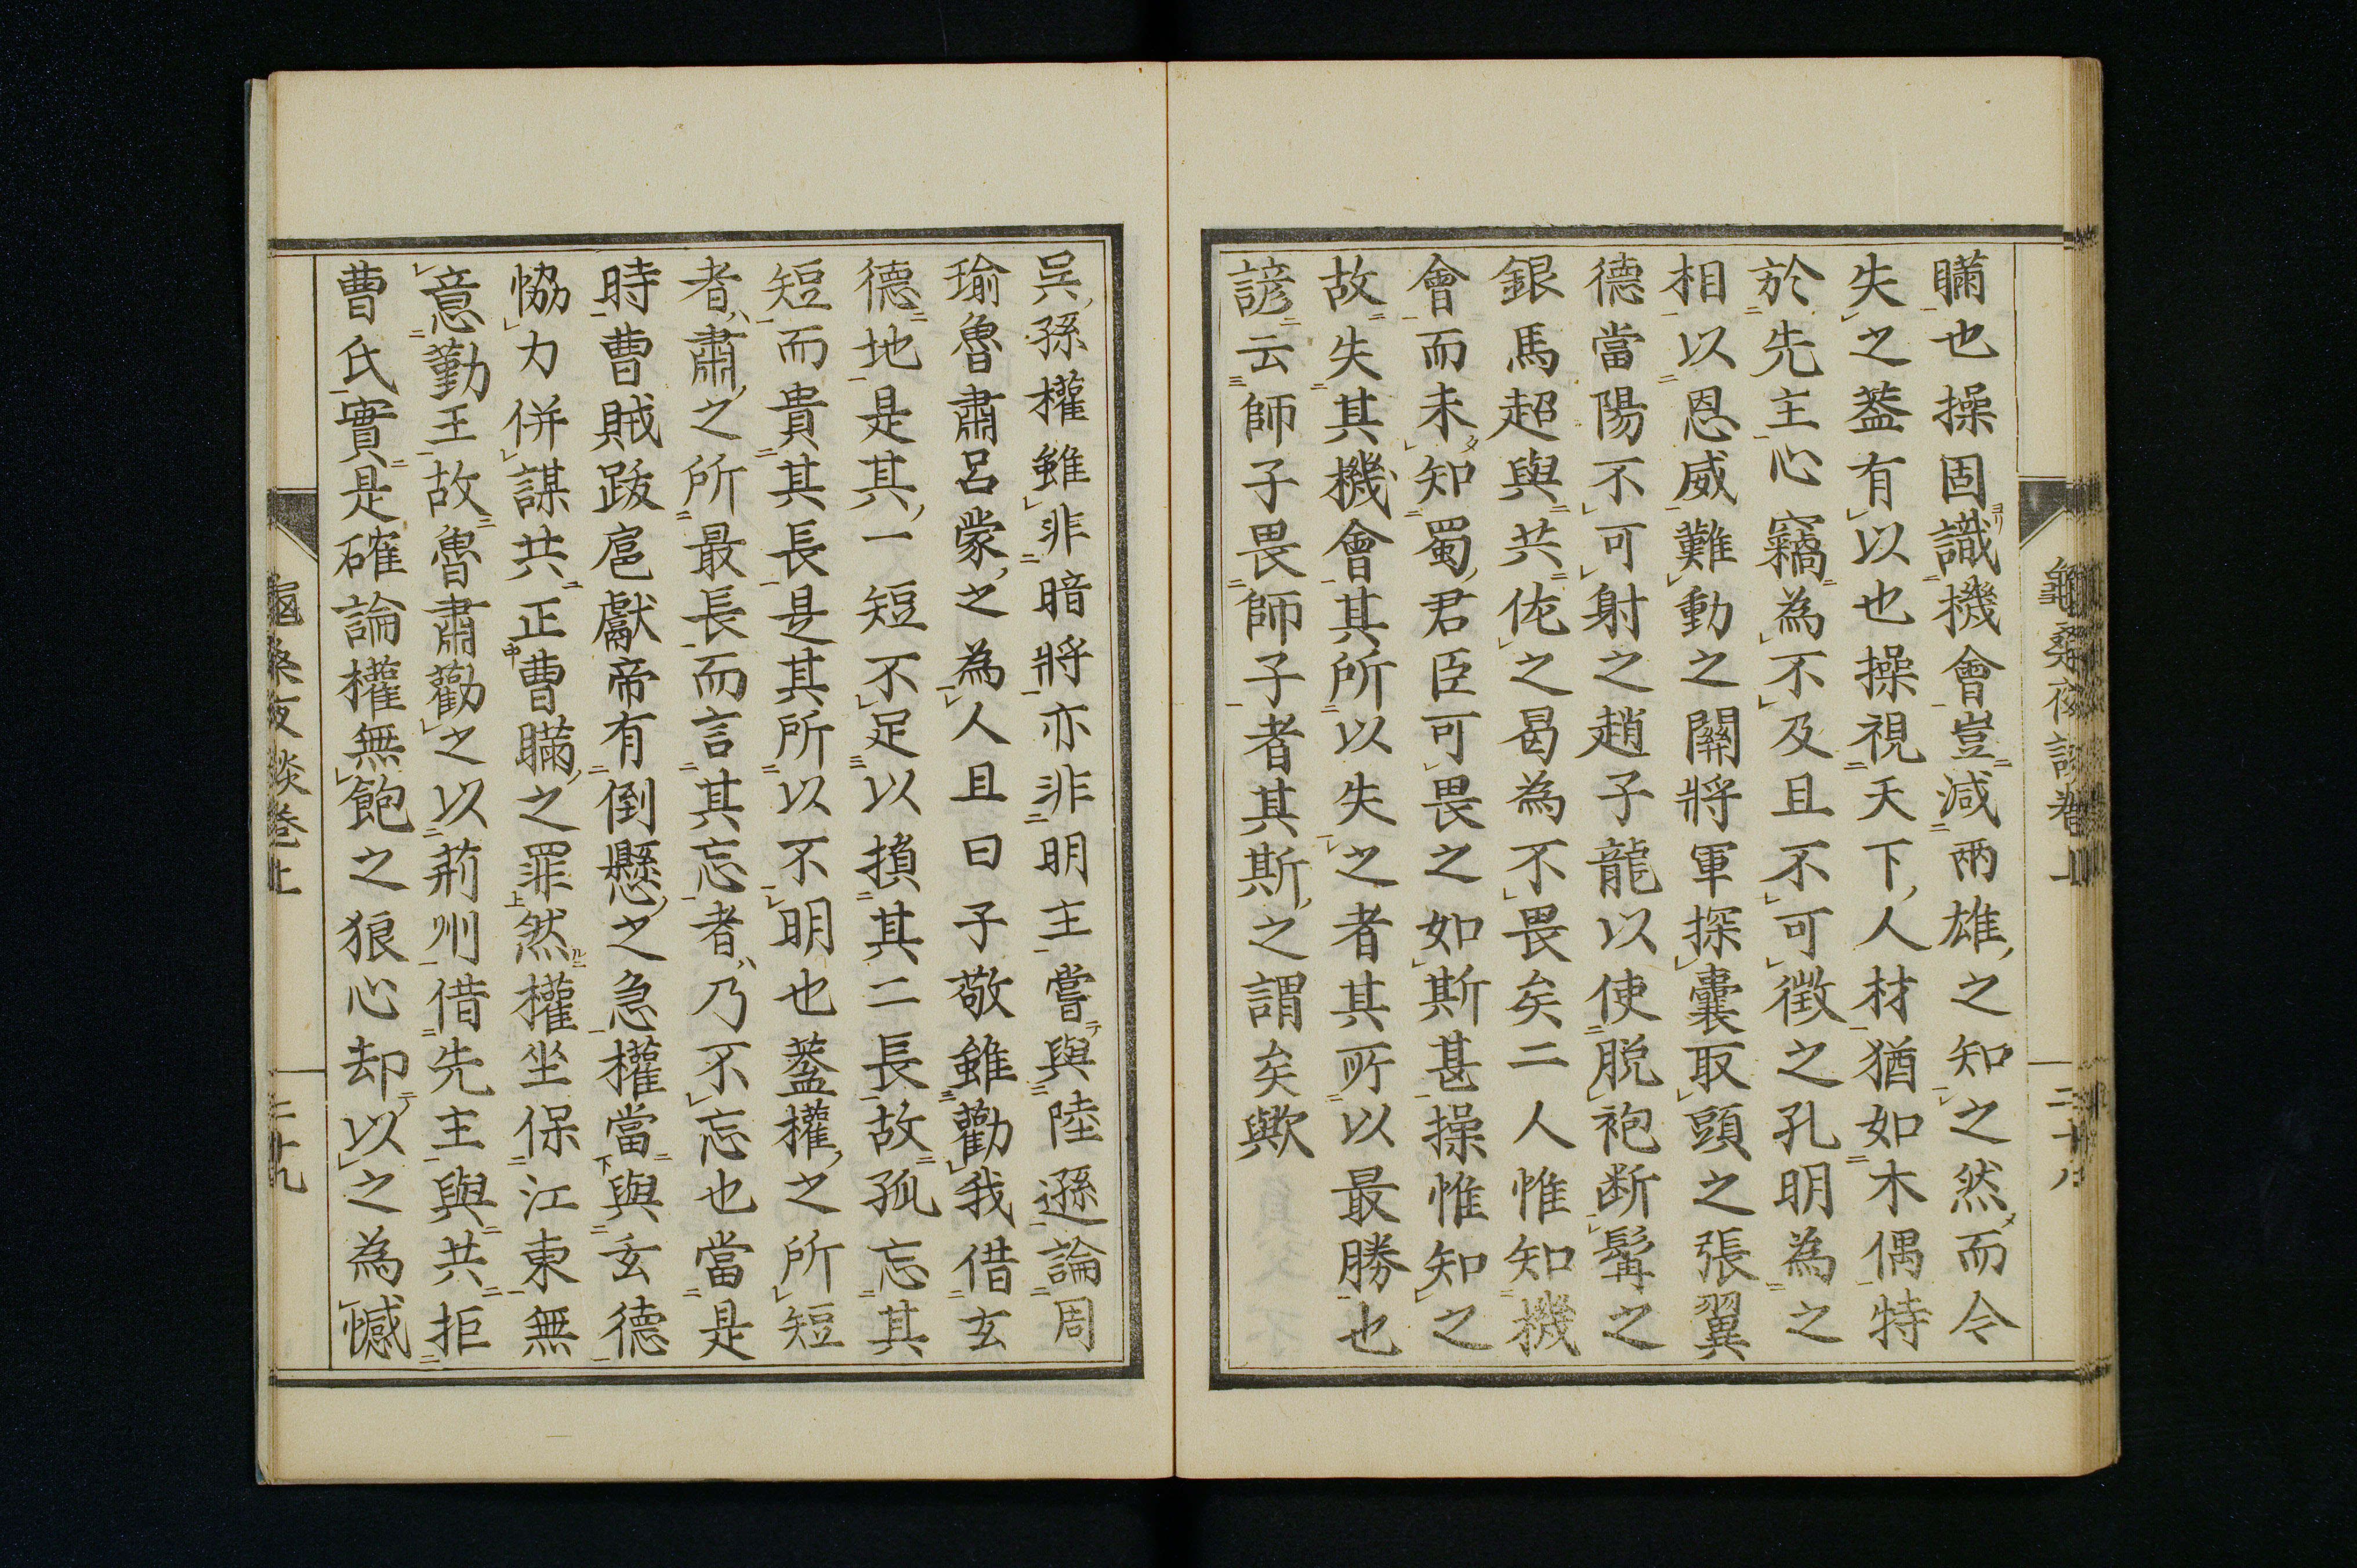 瞞也操固識機會豈減兩雄之知之然而令
失之葢有以也操視天下人材猶如木偶特
於先主心竊為不及且不可徴之孔明為之
相以恩威難動之關將軍探囊取頭之張翼
德當陽不可射之趙子龍以使脱袍断髯之
銀馬超與共佗之曷為不畏矣二人惟知機
會而未知蜀君臣可畏之如斯甚操惟知之
故失其機會其所以失之者其所以最勝也
諺云師子畏師子者其斯之謂矣歟
吳孫權雖非暗將亦非明主嘗與陸遜論周
瑜魯肅呂蒙之為人且曰子敬雖勸我借玄
德地是其一短不足以損其二長故孤忘其
短而貴其長是其所以不明也葢權之所短
者肅之所最長而言其忘者乃不忘也當是
時曹賊跋扈獻帝有倒懸之急權當與玄德
恊力併謀共正曹瞞之罪然權坐保江東無
意勤王故魯肅勸之以荊州借先主與共拒
曹氏實是確論權無飽之狼心却以之為憾
夜談卷上
二十九
二十八